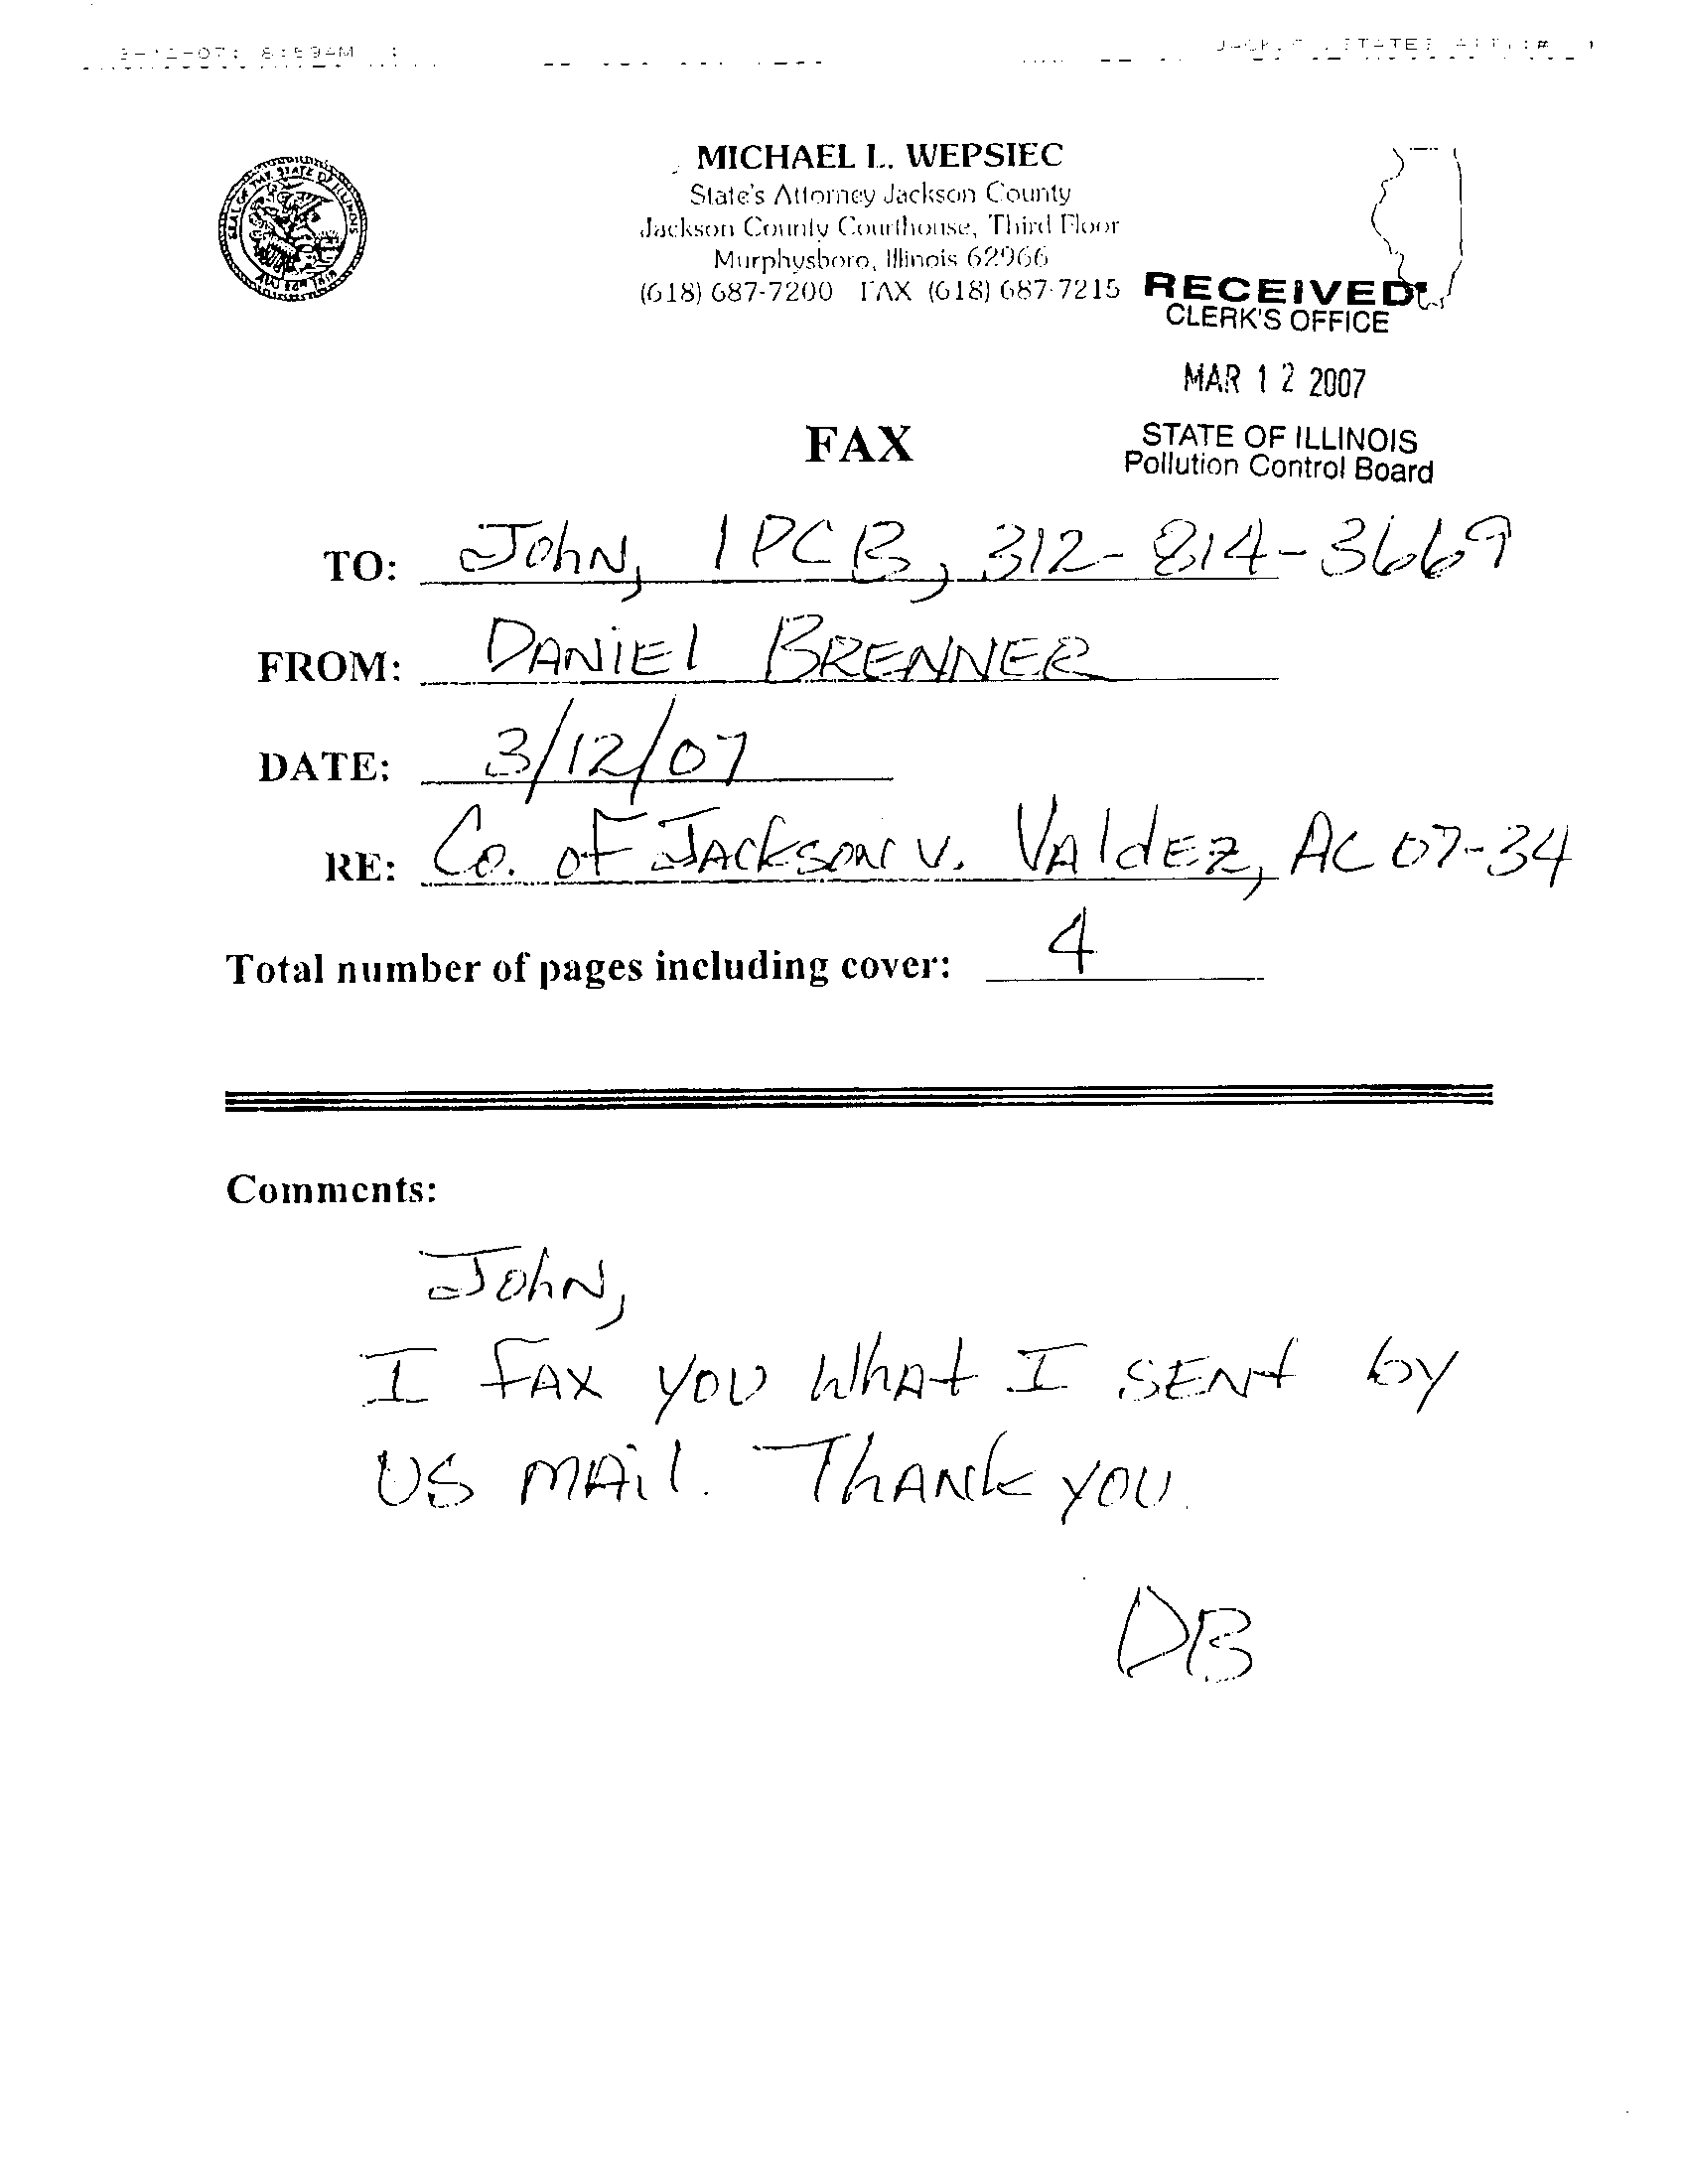 8:59AM
MICHAEL L. WEPSIEC
State's Attorney Jackson County
Jackson County Courthouse, Third Floor
Murphysboro, Illinois 62966
(618) 687-7200 FAX (618) 687-7215
SEAL OF THE STATE OF ILLINOIS
RECEIVED
CLERK'S OFFICE
MAR 12 2007
STATE OF ILLINOIS
Pollution Control Board
FAX
TO: John, IPCB, 312-814-3669
FROM: DANIEl BRENNER
DATE: 3/12/07
RE: Co. of JACkson v. VAldEz, AC 07-34
Total number of pages including cover: 4
Comments:
John,
I FAX you WhAt I SENt by
US MAil. ThANk you.
DB